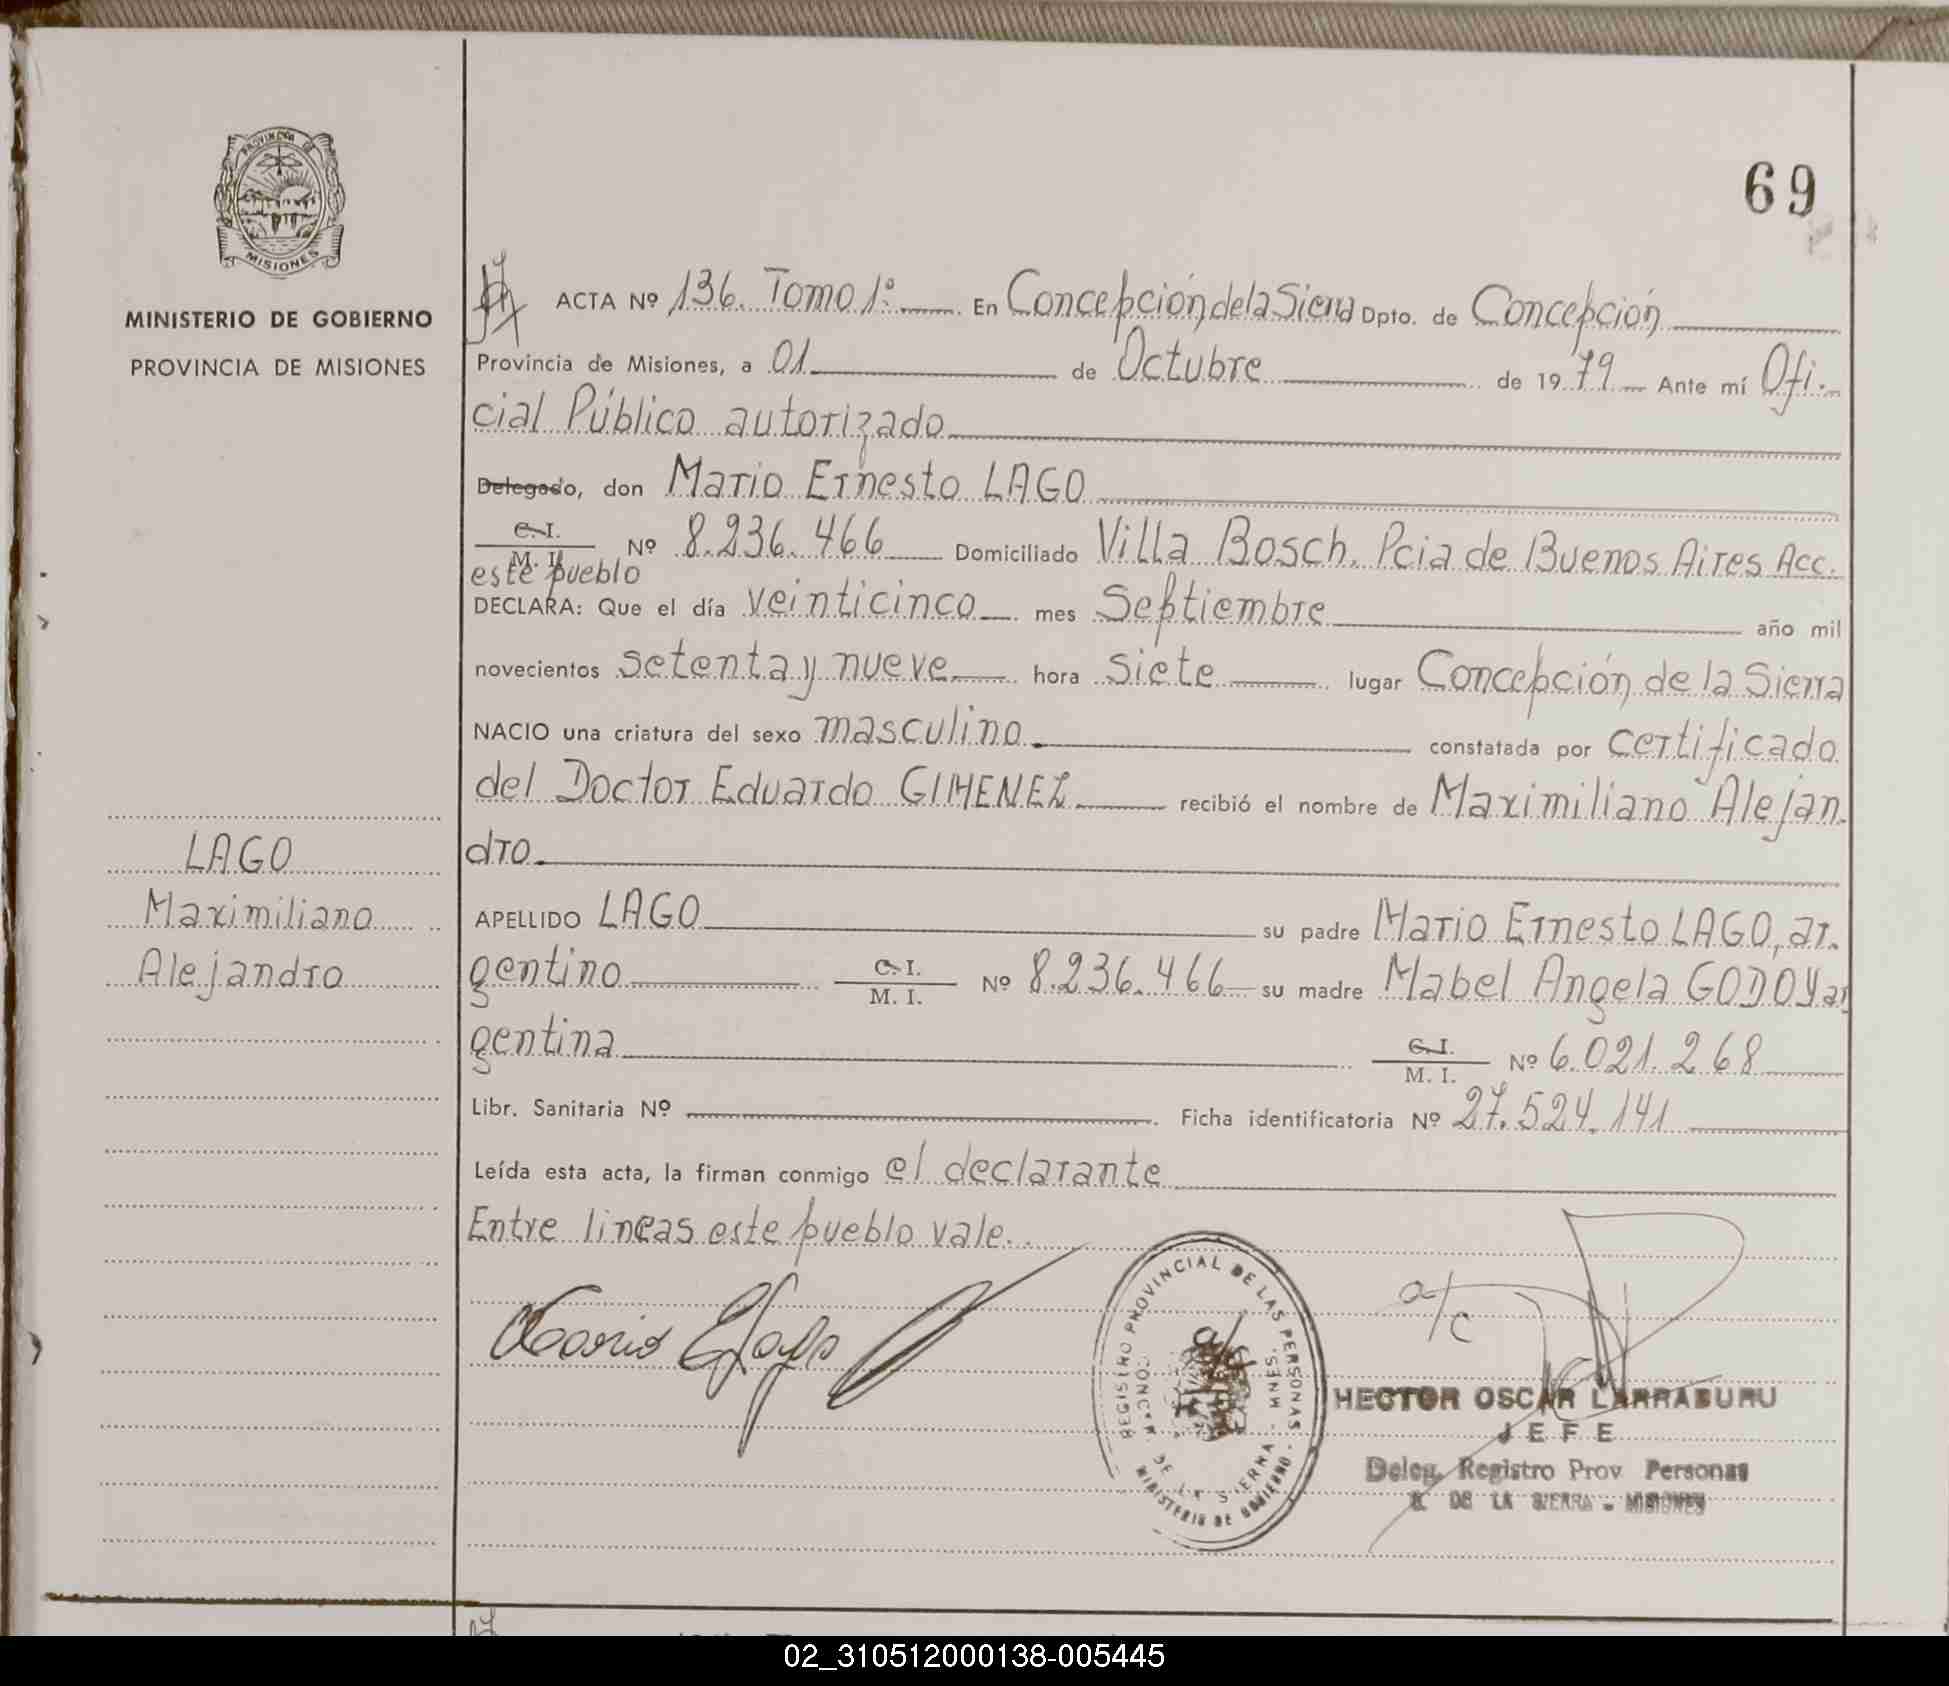 PROVINCIA DE
MISIONES
MINISTERIO DE GOBIERNO
PROVINCIA DE MISIONES
LAGO
Maximiliano
Alejandro
69
ACTA Nº 136. Tomo 1º. En Concepción de la Sierra Dpto. de Concepción
Provincia de Misiones, a 01 de Octubre de 1979 Ante mí Ofi-
cial Público autorizado
Delegado, don Mario Ernesto LAGO
C. I.
M. I. Nº 8.236.466 Domiciliado Villa Bosch. Pcia de Buenos Aires Acc.
este pueblo
DECLARA: Que el día veinticinco mes Septiembre año mil
novecientos setenta y nueve hora siete lugar Concepción de la Sierra
NACIO una criatura del sexo masculino constatada por certificado
del Doctor Eduardo GIMENEZ recibió el nombre de Maximiliano Alejan-
dro
APELLIDO LAGO su padre Mario Ernesto LAGO, ar-
gentino C. I. M. I. Nº 8.236.466 su madre Mabel Angela GODOY ar
gentina C. I. M. I. Nº 6.021.268
Libr. Sanitaria Nº Ficha identificatoria Nº 27.524.141
Leída esta acta, la firman conmigo el declarante
Entre lineas este pueblo vale.
a/c
REGISTRO PROVINCIAL DE LAS PERSONAS
DE LA SIERRA
MINISTERIO DE GOBIERNO
a/c
HECTOR OSCAR LARRABURU
JEFE
Deleg. Registro Prov Personas
C. DE LA SIERRA - MISIONES
02_310512000138-005445